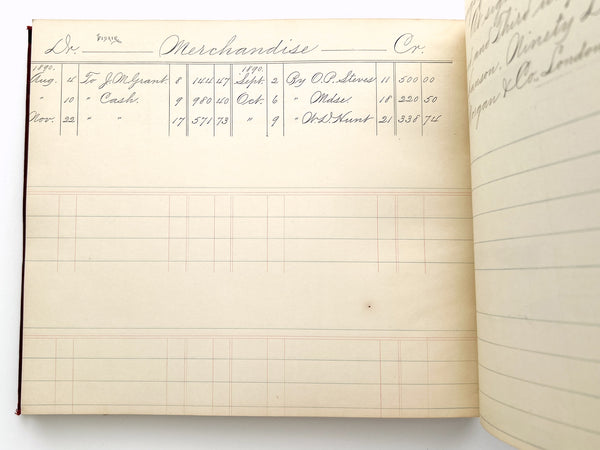 Dr. Merchandise Cr.
1890. 1890.
Aug. 4 To J. M. Grant 8 144 47 Sept. 2 By O. P. Steves 11 500 00
" 10 " Cash. 9 980 40 Oct. 6 " Mdse. 18 220 50
Nov. 22 " " 17 571 73 " 9 " W. D. Hunt 21 338 74
and Third
Ninety
& Co. London